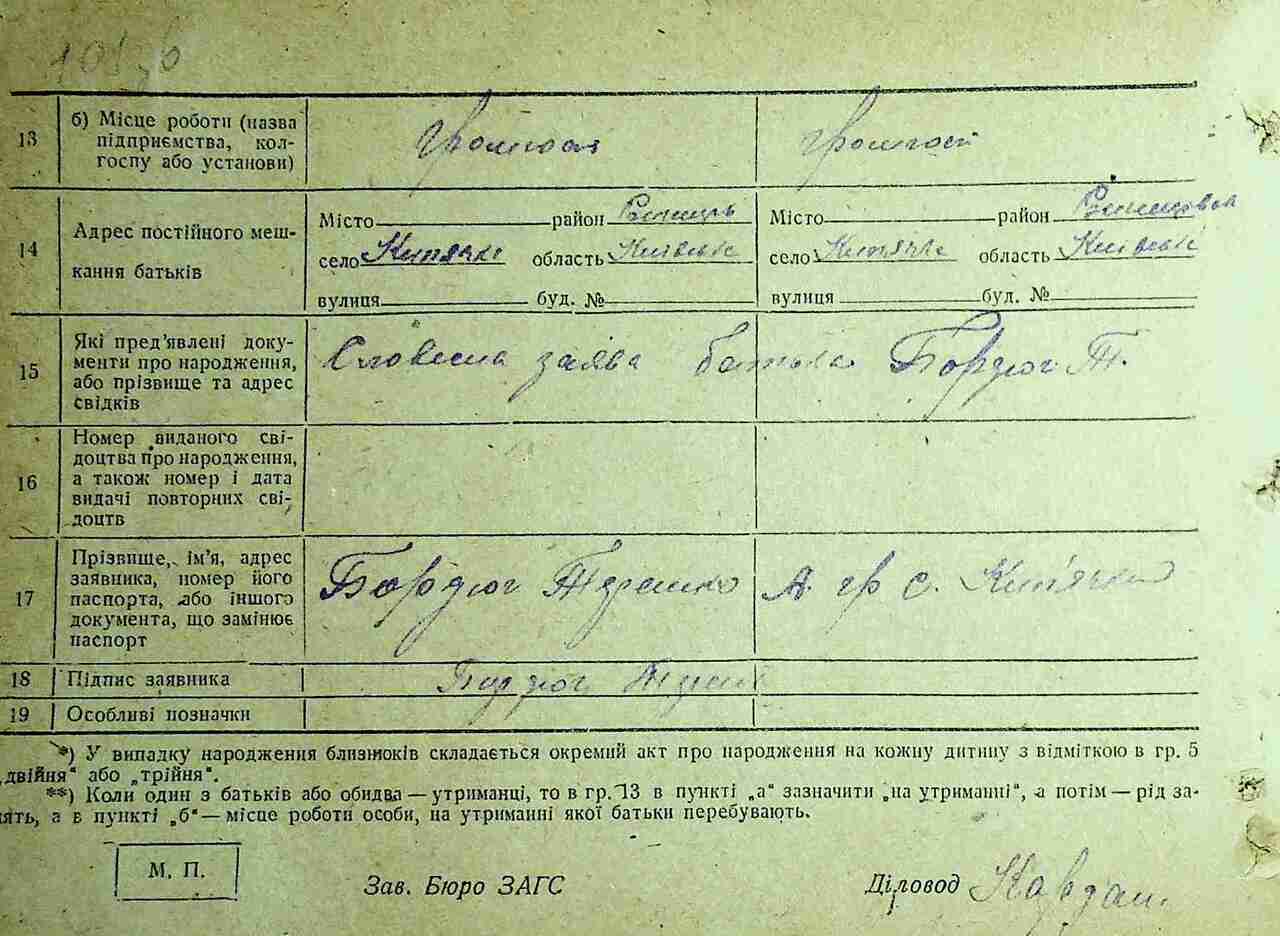 13 б) Місце роботи (назва
підприємства, кол-
госпу або установи)
14 Адрес постійного меш-
кання батьків
Місто район
село область Київське
вулиця буд. №
Місто район
село область Київське
вулиця буд. №
15 Які пред'явлені доку-
менти про народження,
або прізвище та адрес
свідків
Словесна заява батька Бордюг Т.
16 Номер виданого сві-
доцтва про народження,
а також номер і дата
видачі повторних сві-
доцтв
17 Прізвище, ім'я, адрес
заявника, номер його
паспорта, або іншого
документа, що замінює
паспорт
Бордюг А. гр с.
18 Підпис заявника Бордюг
19 Особливі позначки
*) У випадку народження близнюків складається окремий акт про народження на кожну дитину з відміткою в гр. 5
„двійня" або „трійня".
**) Коли один з батьків або обидва — утриманці, то в гр. 13 в пункті „а" зазначити „на утриманні", а потім — рід за-
ять, а в пункті „б" — місце роботи особи, на утриманні якої батьки перебувають.
М. П.
Зав. Бюро ЗАГС
Діловод